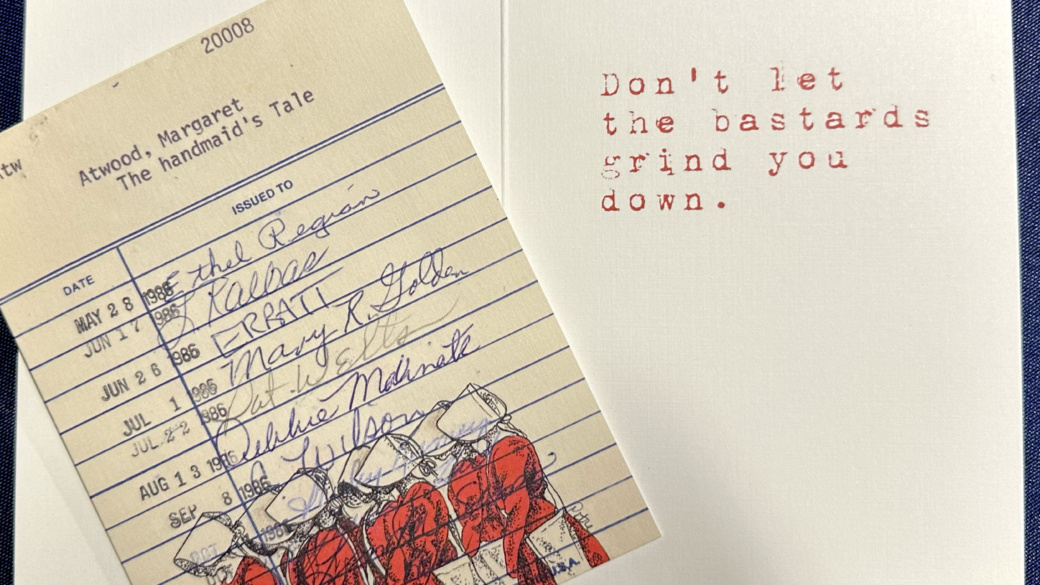 20008
Atwood, Margaret
The handmaid's Tale
DATE
ISSUED TO
MAY 28 1986 Ethel Regan
JUN 17 1986
JUN 26 1986 ERRATI
JUL 1 1986 Mary R. Golden
JUL 22 1986 Pat Welts
AUG 13 1986 Debbie
SEP 8 1986 Wilson
U.S.A.
Don't let
the bastards
grind you
down.